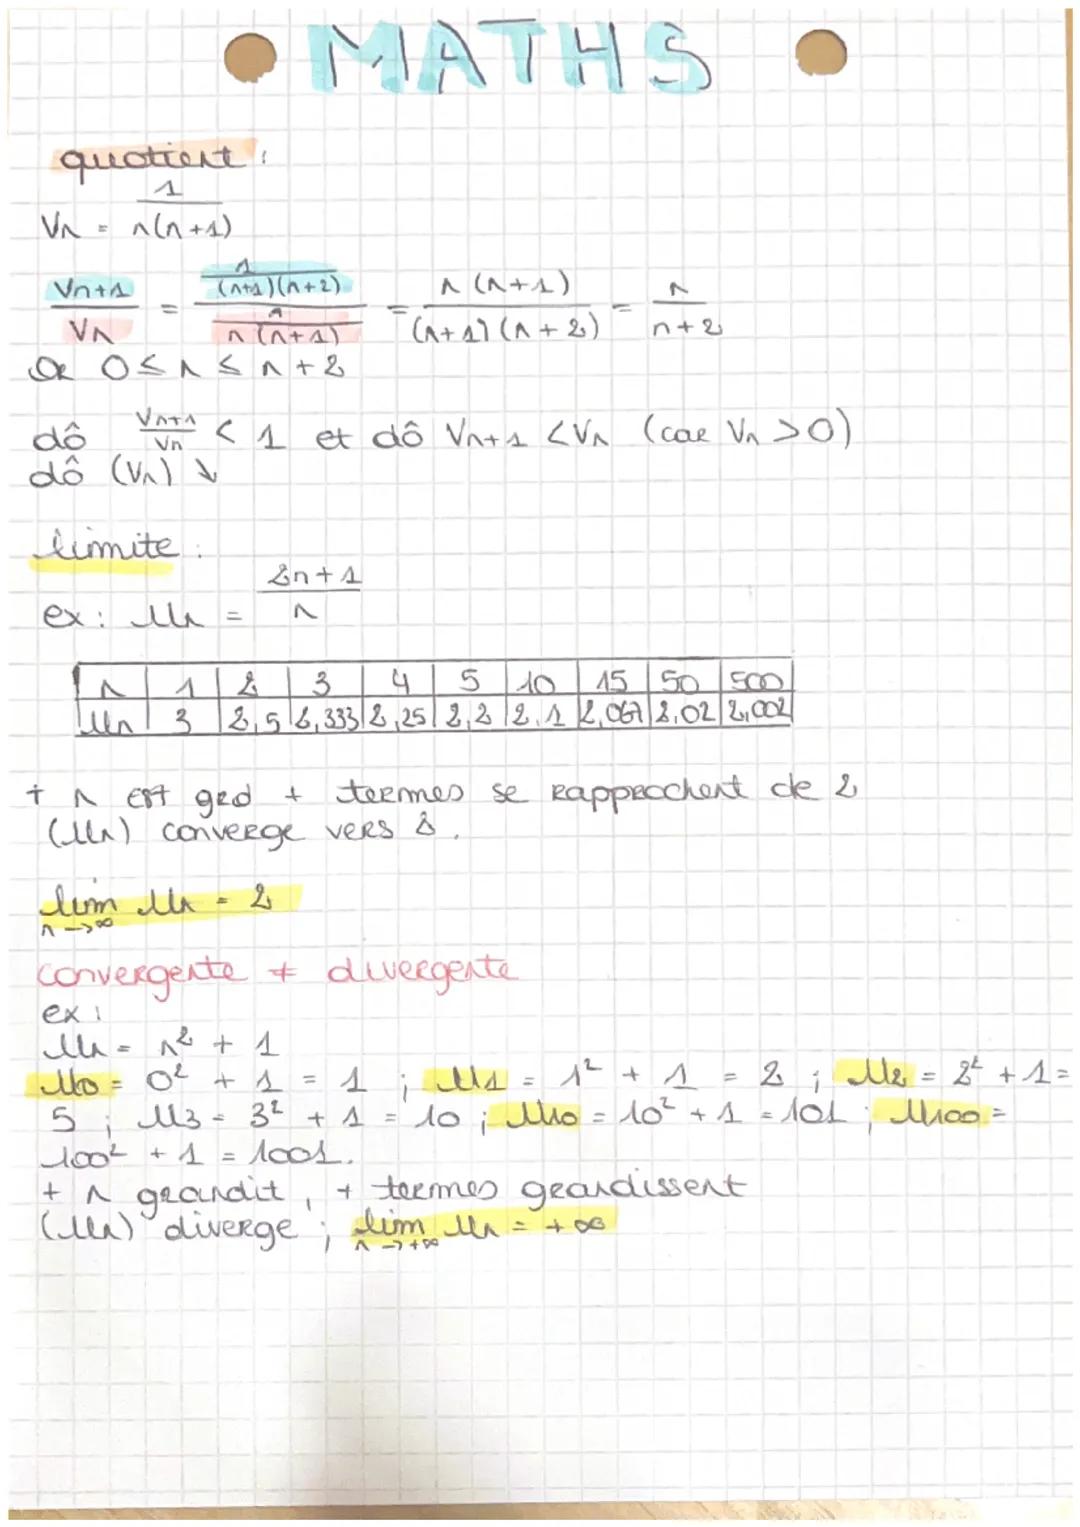 MATHS
quotient :
Vn = 1/n(n+1)
Vn+1/Vn = (1/(n+1)(n+2))/(1/n(n+1)) = n(n+1)/(n+1)(n+2) = n/n+2
Or 0 ≤ n ≤ n+2
dô Vn+1/Vn < 1 et dô Vn+1 < Vn (car Vn > 0)
dô (Vn) ↘
limite :
ex : Un = 2n+1/n
n 1 2 3 4 5 10 15 50 500
Un 3 2,5 2,333 2,25 2,2 2.1 2,067 2,02 2,002
+ n est grd + termes se rapprochent de 2
(Un) converge vers 2.
lim Un = 2
n→∞
convergente ≠ divergente
ex :
Un = n² + 1
U0 = 0² + 1 = 1 ; U1 = 1² + 1 = 2 ; U2 = 2² + 1 =
5 ; U3 = 3² + 1 = 10 ; U10 = 10² + 1 = 101 ; U100 =
100² + 1 = 1001.
+ n grandit, + termes grandissent
(Un) diverge ; lim Un = +∞
n→+∞